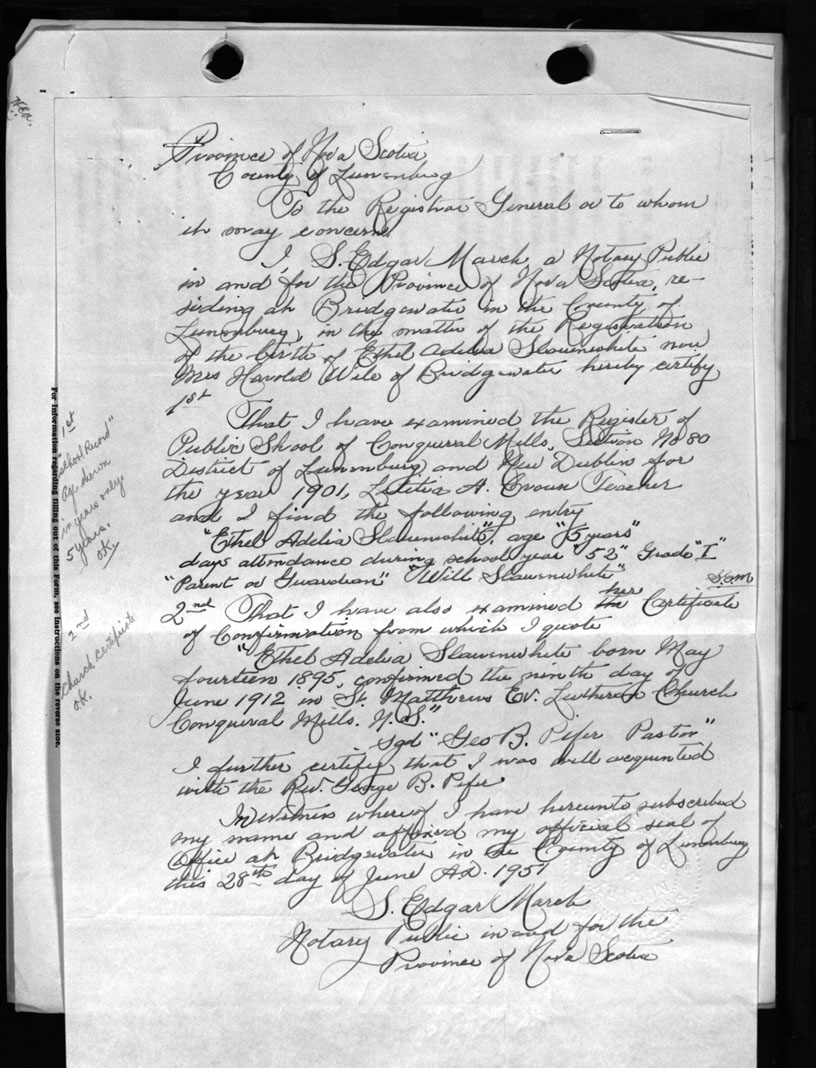 Province of Nova Scotia
County of Lunenburg
To the Registrar General or to whom
it may concern.
I, S. Edgar March, a Notary Public
in and for the Province of Nova Scotia, re-
siding at Bridgewater in the County of
Lunenburg, in the matter of the Registration
of the birth of Ethel Adelia Slawenwhite now
Mrs Harold Wile of Bridgewater hereby certify
1st
That I have examined the Register of
Public Skool of Conquerall Mills, Section No 80
District of Lunenburg and New Dublin for
the year 1901, Letitia A. Teacher
and I find the following entry
"Ethel Adelia Slauenwhite", age "5 years"
days attendance during school year "52" Grade "I"
"Parent or Guardian" "Will Slauenwhite"
S.E.M
her
2nd That I have also examined the Certificate
of Confirmation from which I quote
"Ethel Adelia Slauenwhite born May
fourteen 1895, confirmed the ninth day of
June 1912 in St. Matthews Ev. Lutheran Church
Conqueral Mills. N.S."
sgd "Geo B. Pifer Pastor"
I further certify that I was well acquinted
with the Rev. George B. Pifer
In witness whereof I have hereunto subscribed
my name and affixed my official seal of
Office at Bridgewater in the County of Lunenburg
this 28th day of June A.D. 1951
S. Edgar March
Notary Public in and for the
Province of Nova Scotia
1st
"School Record"
Age shown
in years only
5 years.
O.K.
2nd
Church Certificate
O.K.
For Information regarding filling out of this Form, see Instructions on the reverse side.